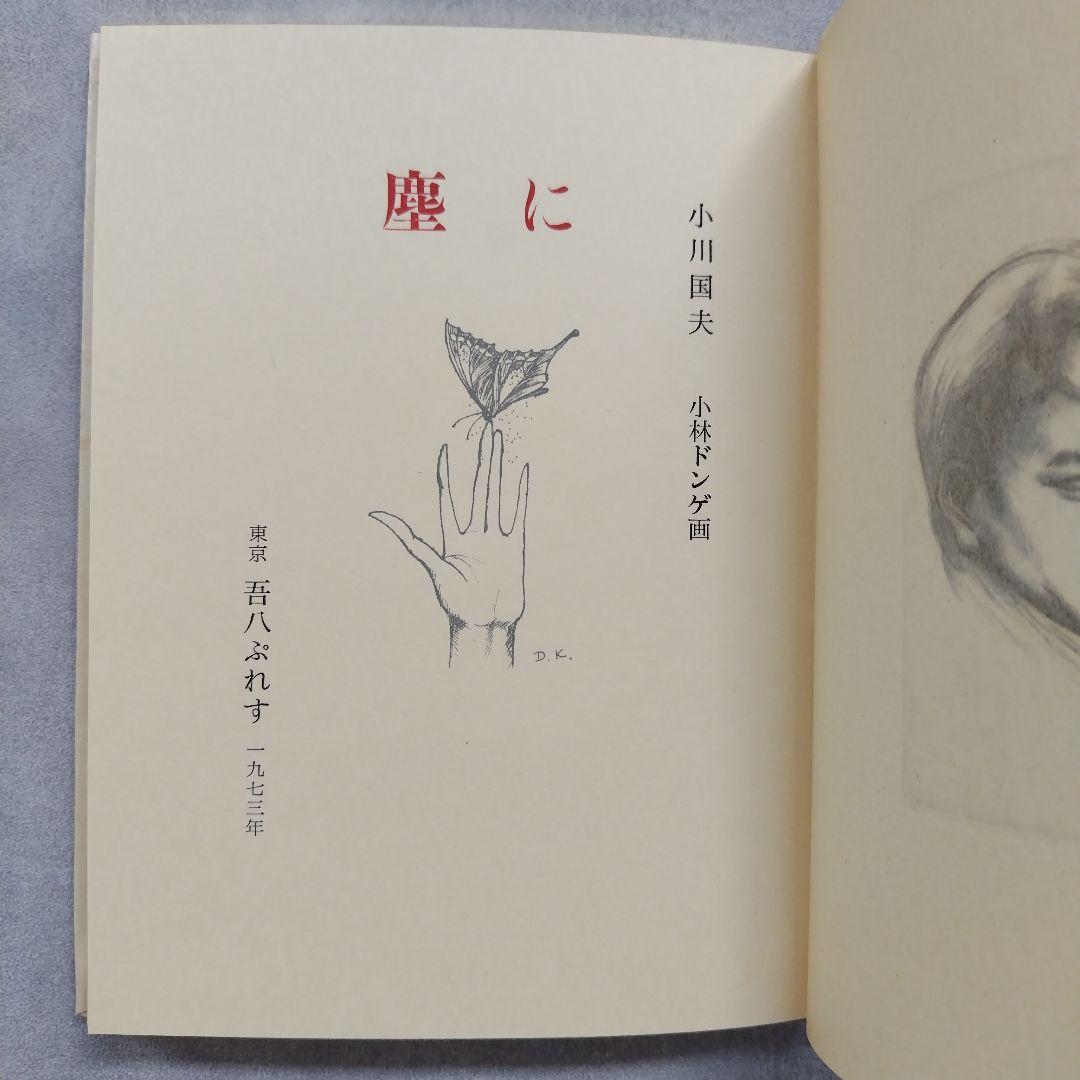 小川国夫　小林ドンゲ画
塵に
D.K.
東京　吾八ぷれす　一九七三年